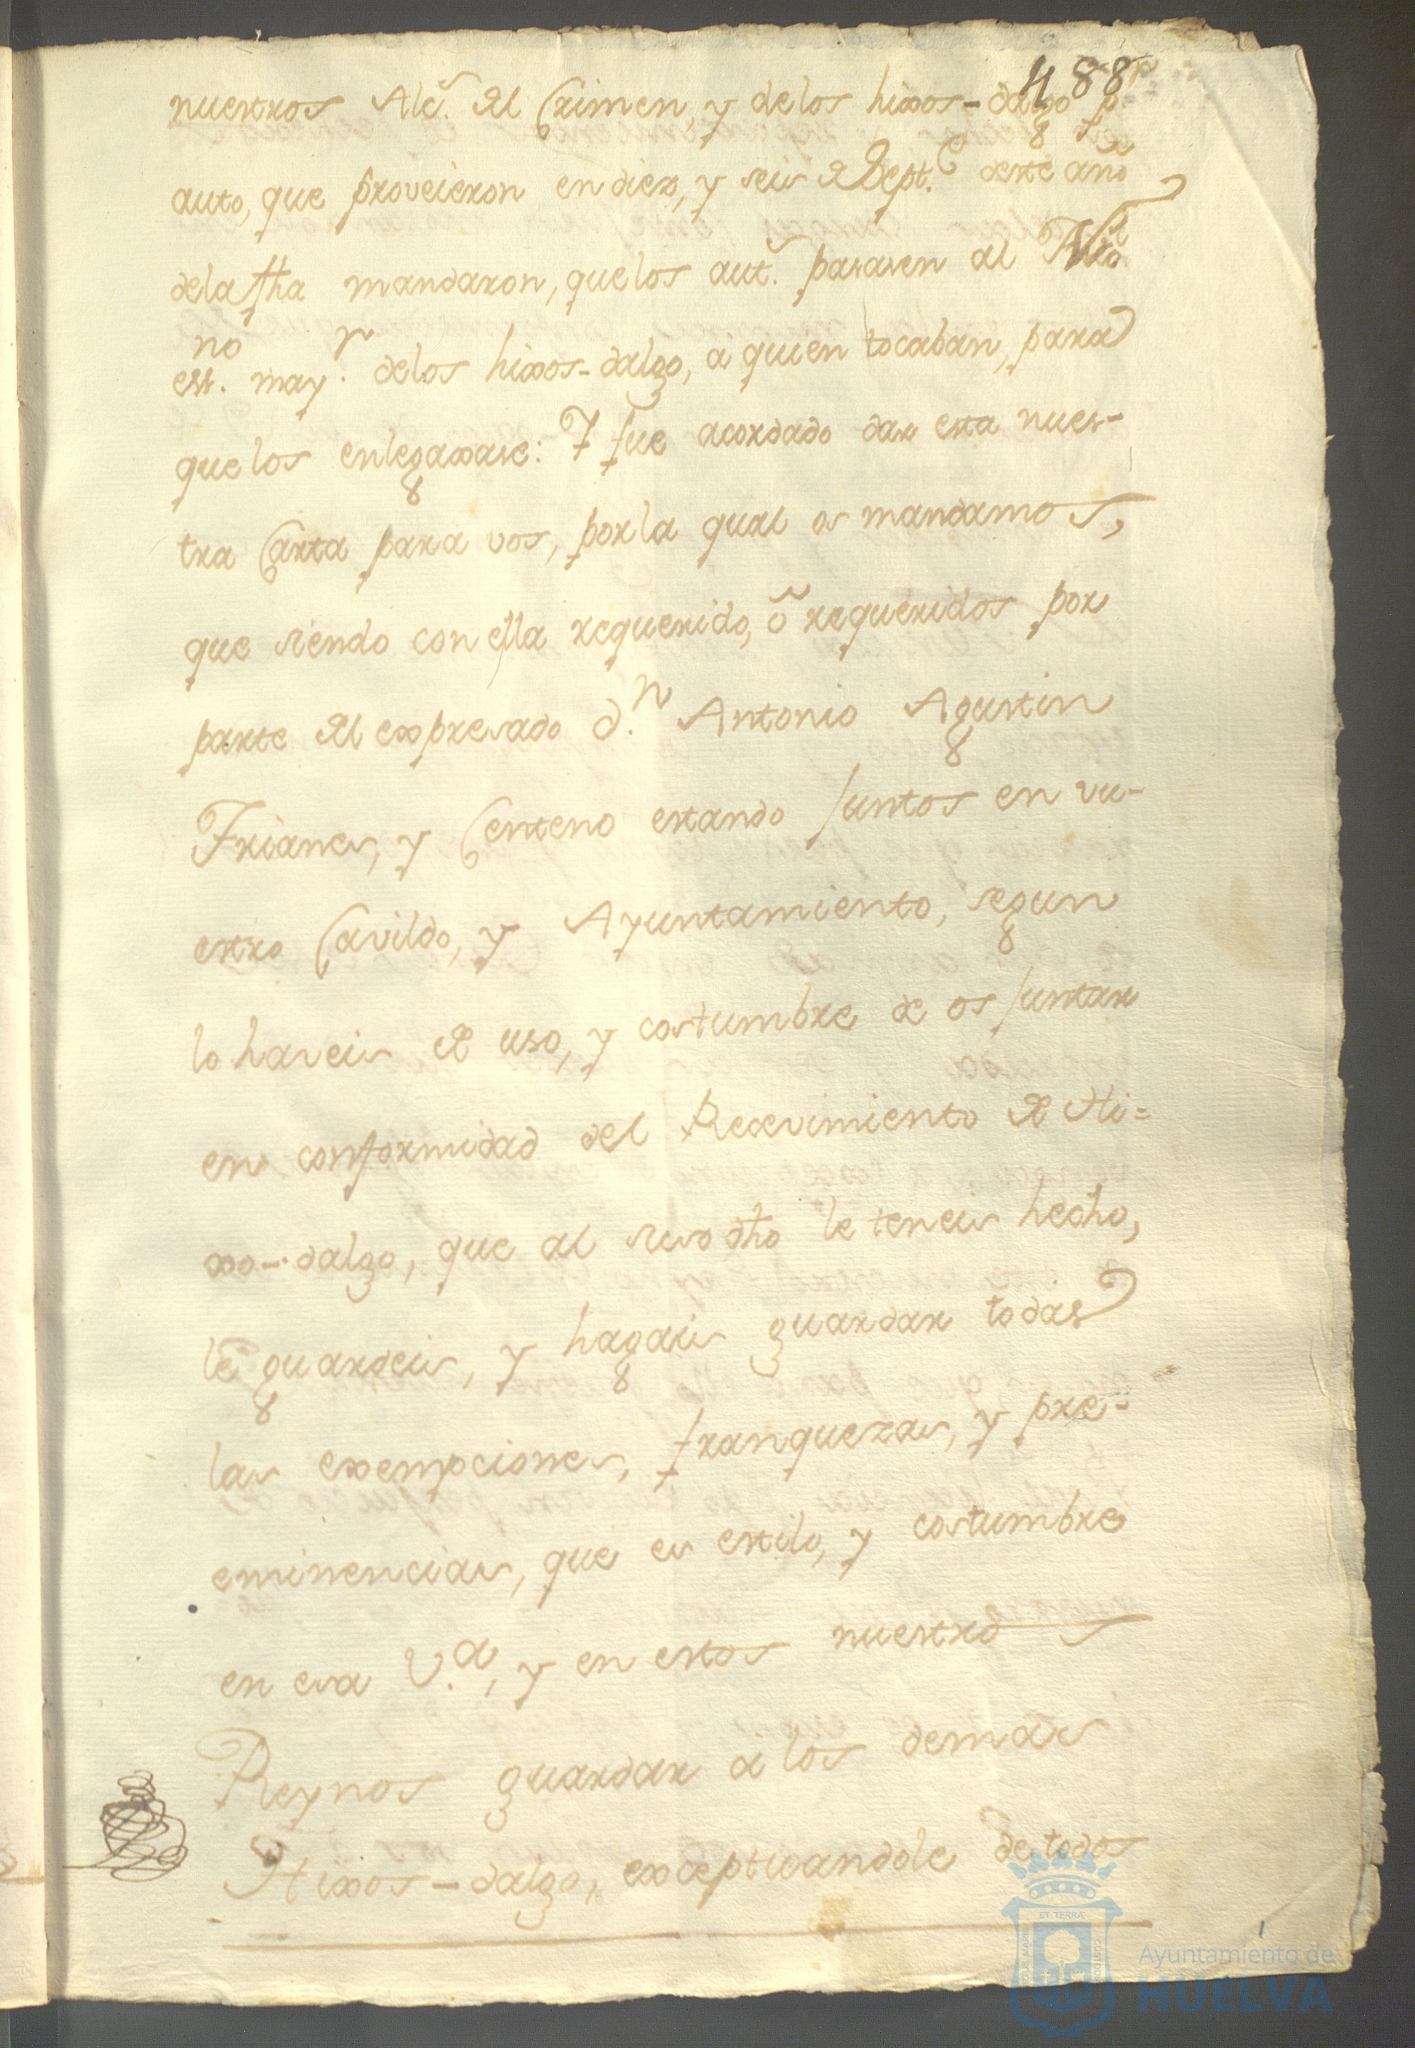 488
nuestros Alc.s del Crimen, y delos hixos-dalgo p.r
auto, que proveieron en diez, y seis de Sept.e deste año
dela fha mandaron, quelos aut.s pasasen al
es.no may.r delos hixos-dalgo, a quien tocaban, para
quelos enlegaxase: Y fue acordado dar esta nues-
tra Carta para vos, porla qual os mandamos,
que siendo con ella requerido, ò requeridos por
parte del expresado d.n Antonio Agustin
Frianes, y Centeno estando Juntos en vu-
estro Cavildo, y Ayuntamiento, segun
lo haveis de uso, y costumbre de os Juntar
en conformidad del Recevimiento de Hi=
xo-dalgo, que al suso dho le teneis hecho,
le guardeis, y hagais guardar todas
las exempciones, franquezas, y pre-
eminencias, que es estilo, y costumbre
en esa V.a, y en estos nuestros
Reynos guardar a los demás
Hixos-dalgo, exceptuandole de todos
ET TERRÆ
Ayuntamiento de
HUELVA